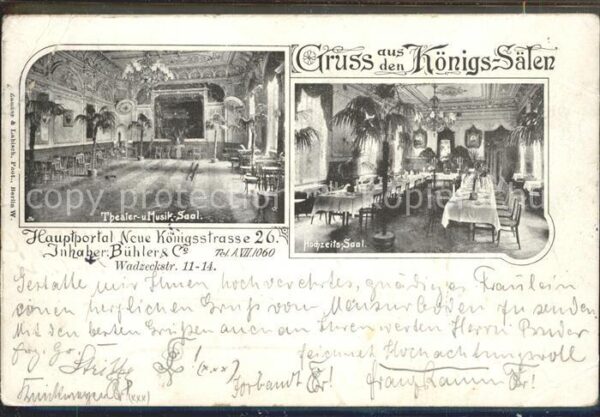 Gruss aus den Königs-Sälen
Theater- u. Musik-Saal.
Hochzeits-Saal.
Zander & Labisch, Phot., Berlin W.
Hauptportal Neue Königsstrasse 26.
Inhaber: Bühler & Co Tel. A. VII 1060
Wadzeckstr. 11-14.
Gestatte mir Ihnen hochverehrtes, gnädiges Fräulein
einen herzlichen Gruß vom Mensurboden zu senden
Mit den besten Grüßen auch an Ihren werten Herrn Bruder
zeichnet Hochachtungsvoll
(xxx)
(xxx)
copyright protection